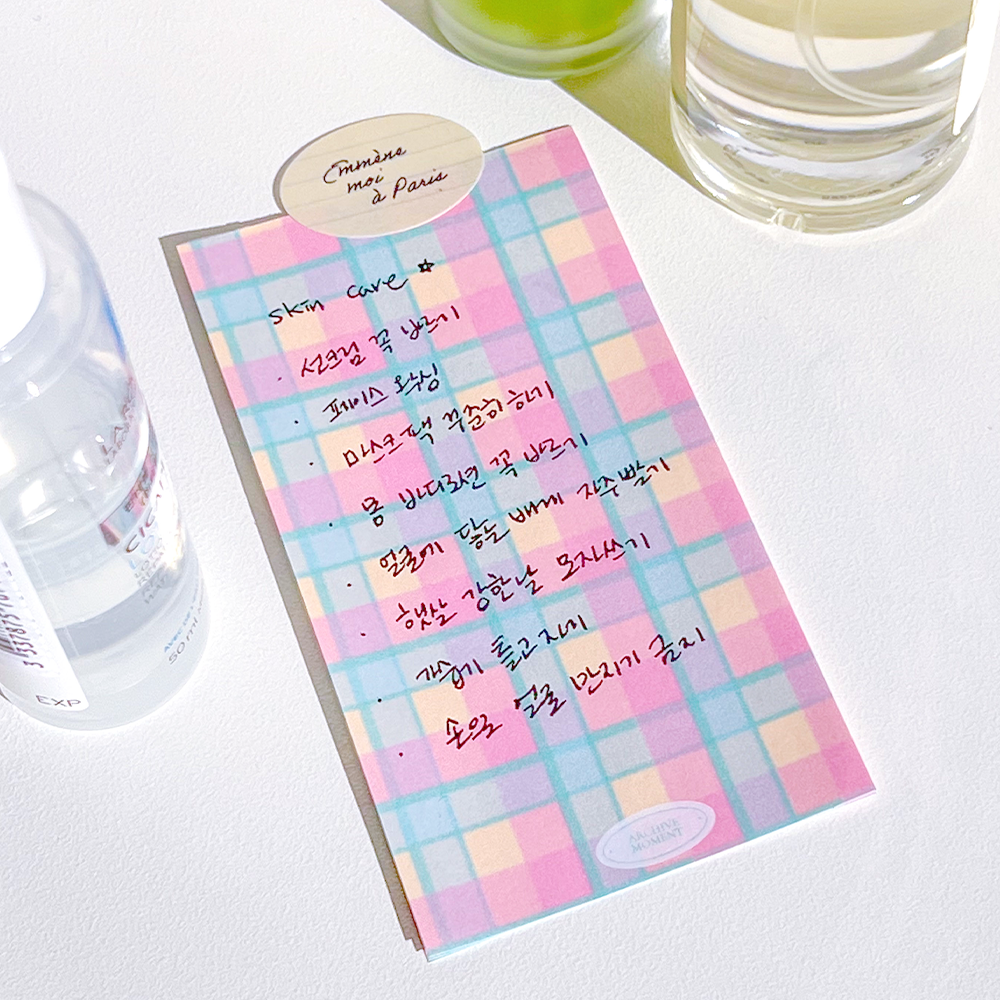 Emmène
moi
à Paris
skin care ☆
· 선크림 꼭 바르기
· 페이스 왁싱
· 마스크팩 꾸준히 하기
· 몸 바디로션 꼭 바르기
· 얼굴에 닿는 배게 자주 빨기
· 햇살 강한 날 모자쓰기
· 가습기 틀고 자기
· 손으로 얼굴 만지기 금지
ARCHIVE
MOMENT
CIC
50 ml
EXP